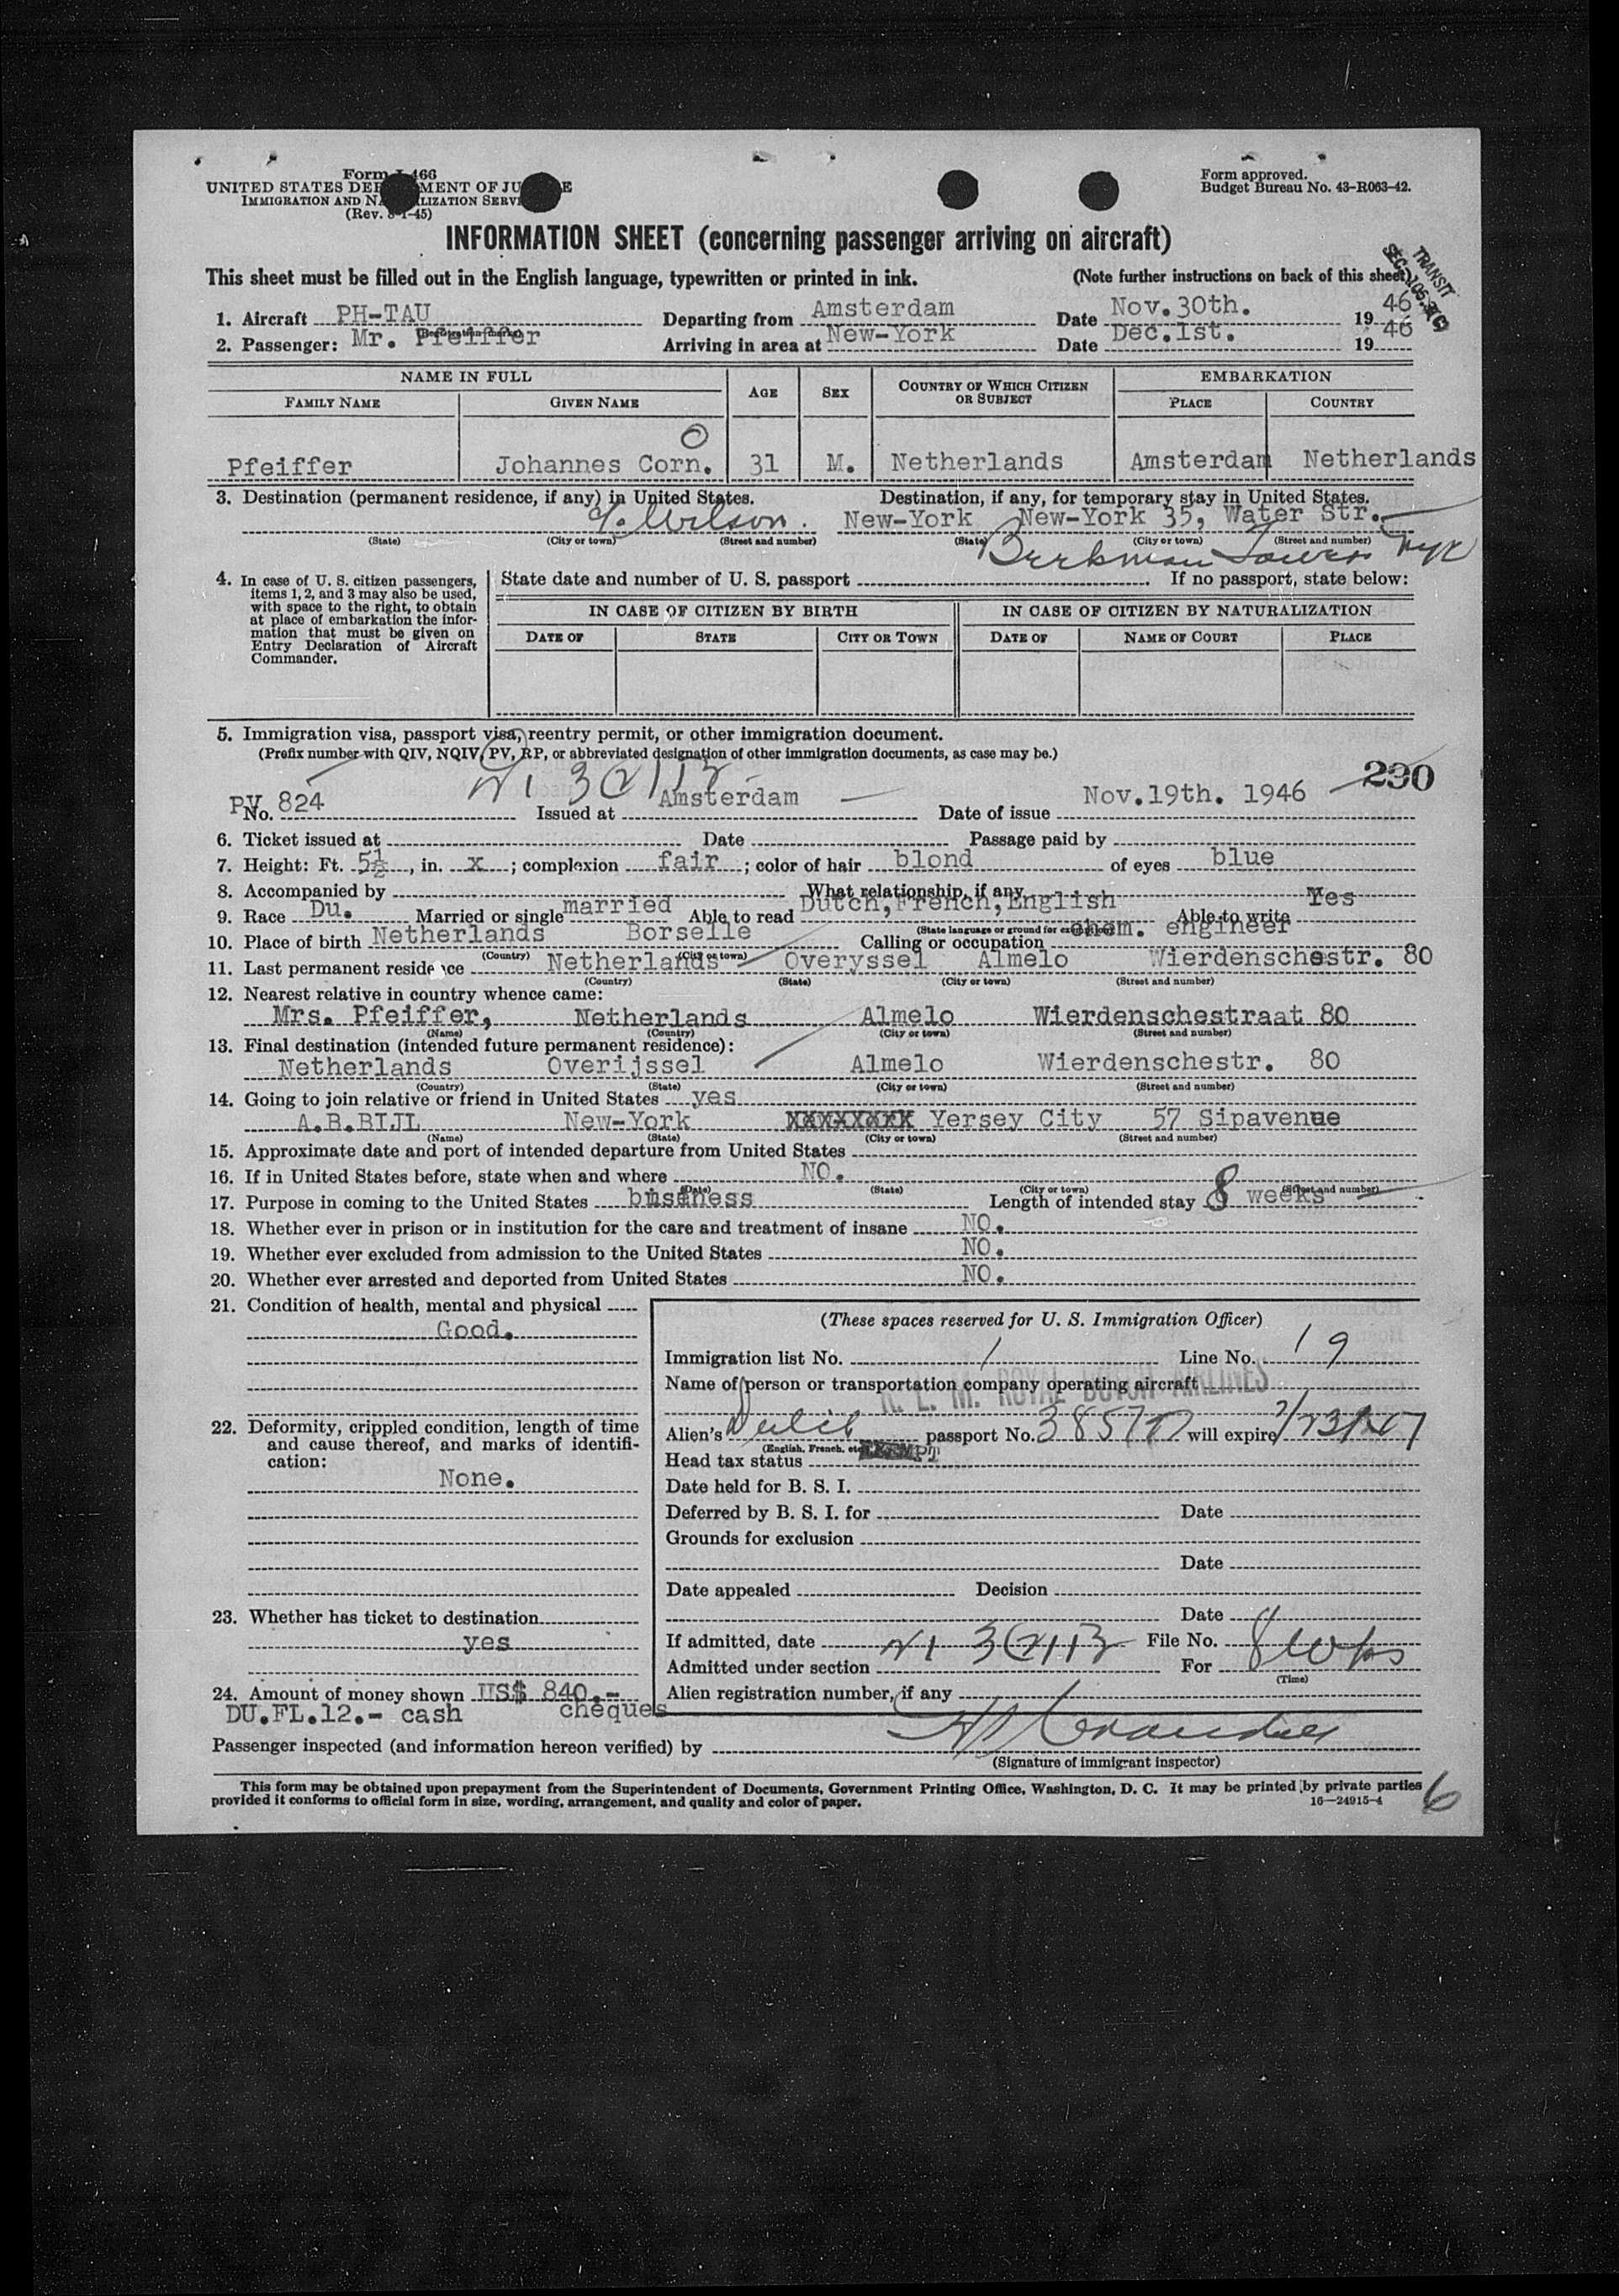 Form I-466
UNITED STATES DEPARTMENT OF JUSTICE
IMMIGRATION AND NATURALIZATION SERVICE
(Rev. 8-1-45)
Form approved.
Budget Bureau No. 43-R063-42.
INFORMATION SHEET (concerning passenger arriving on aircraft)
This sheet must be filled out in the English language, typewritten or printed in ink. (Note further instructions on back of this sheet)
TRANSIT
1. Aircraft PH-TAU Departing from Amsterdam Date Nov.30th. 1946
(Registration marks)
2. Passenger: Mr. Pfeiffer Arriving in area at New-York Date Dec.1st. 1946
NAME IN FULL AGE SEX COUNTRY OF WHICH CITIZEN OR SUBJECT EMBARKATION
FAMILY NAME GIVEN NAME PLACE COUNTRY
Pfeiffer Johannes Corn. 31 M. Netherlands Amsterdam Netherlands
3. Destination (permanent residence, if any) in United States. Destination, if any, for temporary stay in United States.
Wilson. New-York New-York 35, Water Str.
(State) (City or town) (Street and number) (State) (City or town) (Street and number)
Beekman Towers NYC
4. In case of U. S. citizen passengers, items 1, 2, and 3 may also be used, with space to the right, to obtain at place of embarkation the information that must be given on Entry Declaration of Aircraft Commander.
State date and number of U. S. passport If no passport, state below:
IN CASE OF CITIZEN BY BIRTH IN CASE OF CITIZEN BY NATURALIZATION
DATE OF STATE CITY OR TOWN DATE OF NAME OF COURT PLACE
5. Immigration visa, passport visa, reentry permit, or other immigration document.
(Prefix number with QIV, NQIV, PV, RP, or abbreviated designation of other immigration documents, as case may be.)
230
PV No. 824 Issued at Amsterdam Date of issue Nov.19th. 1946
6. Ticket issued at Date Passage paid by
7. Height: Ft. 5½, in. x; complexion fair; color of hair blond of eyes blue
8. Accompanied by What relationship, if any
9. Race Du. Married or single married Able to read Dutch,French,English Able to write Yes
(State language or ground for exemption)
10. Place of birth Netherlands Borselle Calling or occupation chem. engineer
(Country) (City or town)
11. Last permanent residence Netherlands Overyssel Almelo Wierdenschestr. 80
(Country) (State) (City or town) (Street and number)
12. Nearest relative in country whence came:
Mrs. Pfeiffer, Netherlands Almelo Wierdenschestraat 80
(Name) (Country) (City or town) (Street and number)
13. Final destination (intended future permanent residence):
Netherlands Overijssel Almelo Wierdenschestr. 80
(Country) (State) (City or town) (Street and number)
14. Going to join relative or friend in United States yes
A.B.BIJL New-York Yersey City 57 Sipavenue
(Name) (State) (City or town) (Street and number)
15. Approximate date and port of intended departure from United States
16. If in United States before, state when and where NO.
(Date) (State) (City or town) (Street and number)
17. Purpose in coming to the United States business Length of intended stay 8 weeks
18. Whether ever in prison or in institution for the care and treatment of insane NO.
19. Whether ever excluded from admission to the United States NO.
20. Whether ever arrested and deported from United States NO.
21. Condition of health, mental and physical
Good.
22. Deformity, crippled condition, length of time and cause thereof, and marks of identification:
None.
23. Whether has ticket to destination
yes
24. Amount of money shown US$ 840.-
DU.FL.12.- cash cheques
(These spaces reserved for U. S. Immigration Officer)
Immigration list No. 1 Line No. 19
Name of person or transportation company operating aircraft
K. L. M. ROYAL DUTCH AIRLINES
Alien's Dutch passport No. will expire
(English, French, etc.)
Head tax status EXEMPT
Date held for B. S. I.
Deferred by B. S. I. for Date
Grounds for exclusion
Date
Date appealed Decision
Date
If admitted, date File No.
Admitted under section For 8 wks
(Time)
Alien registration number, if any
Passenger inspected (and information hereon verified) by
(Signature of immigrant inspector)
This form may be obtained upon prepayment from the Superintendent of Documents, Government Printing Office, Washington, D. C. It may be printed by private parties
provided it conforms to official form in size, wording, arrangement, and quality and color of paper. 16—24915-4
6